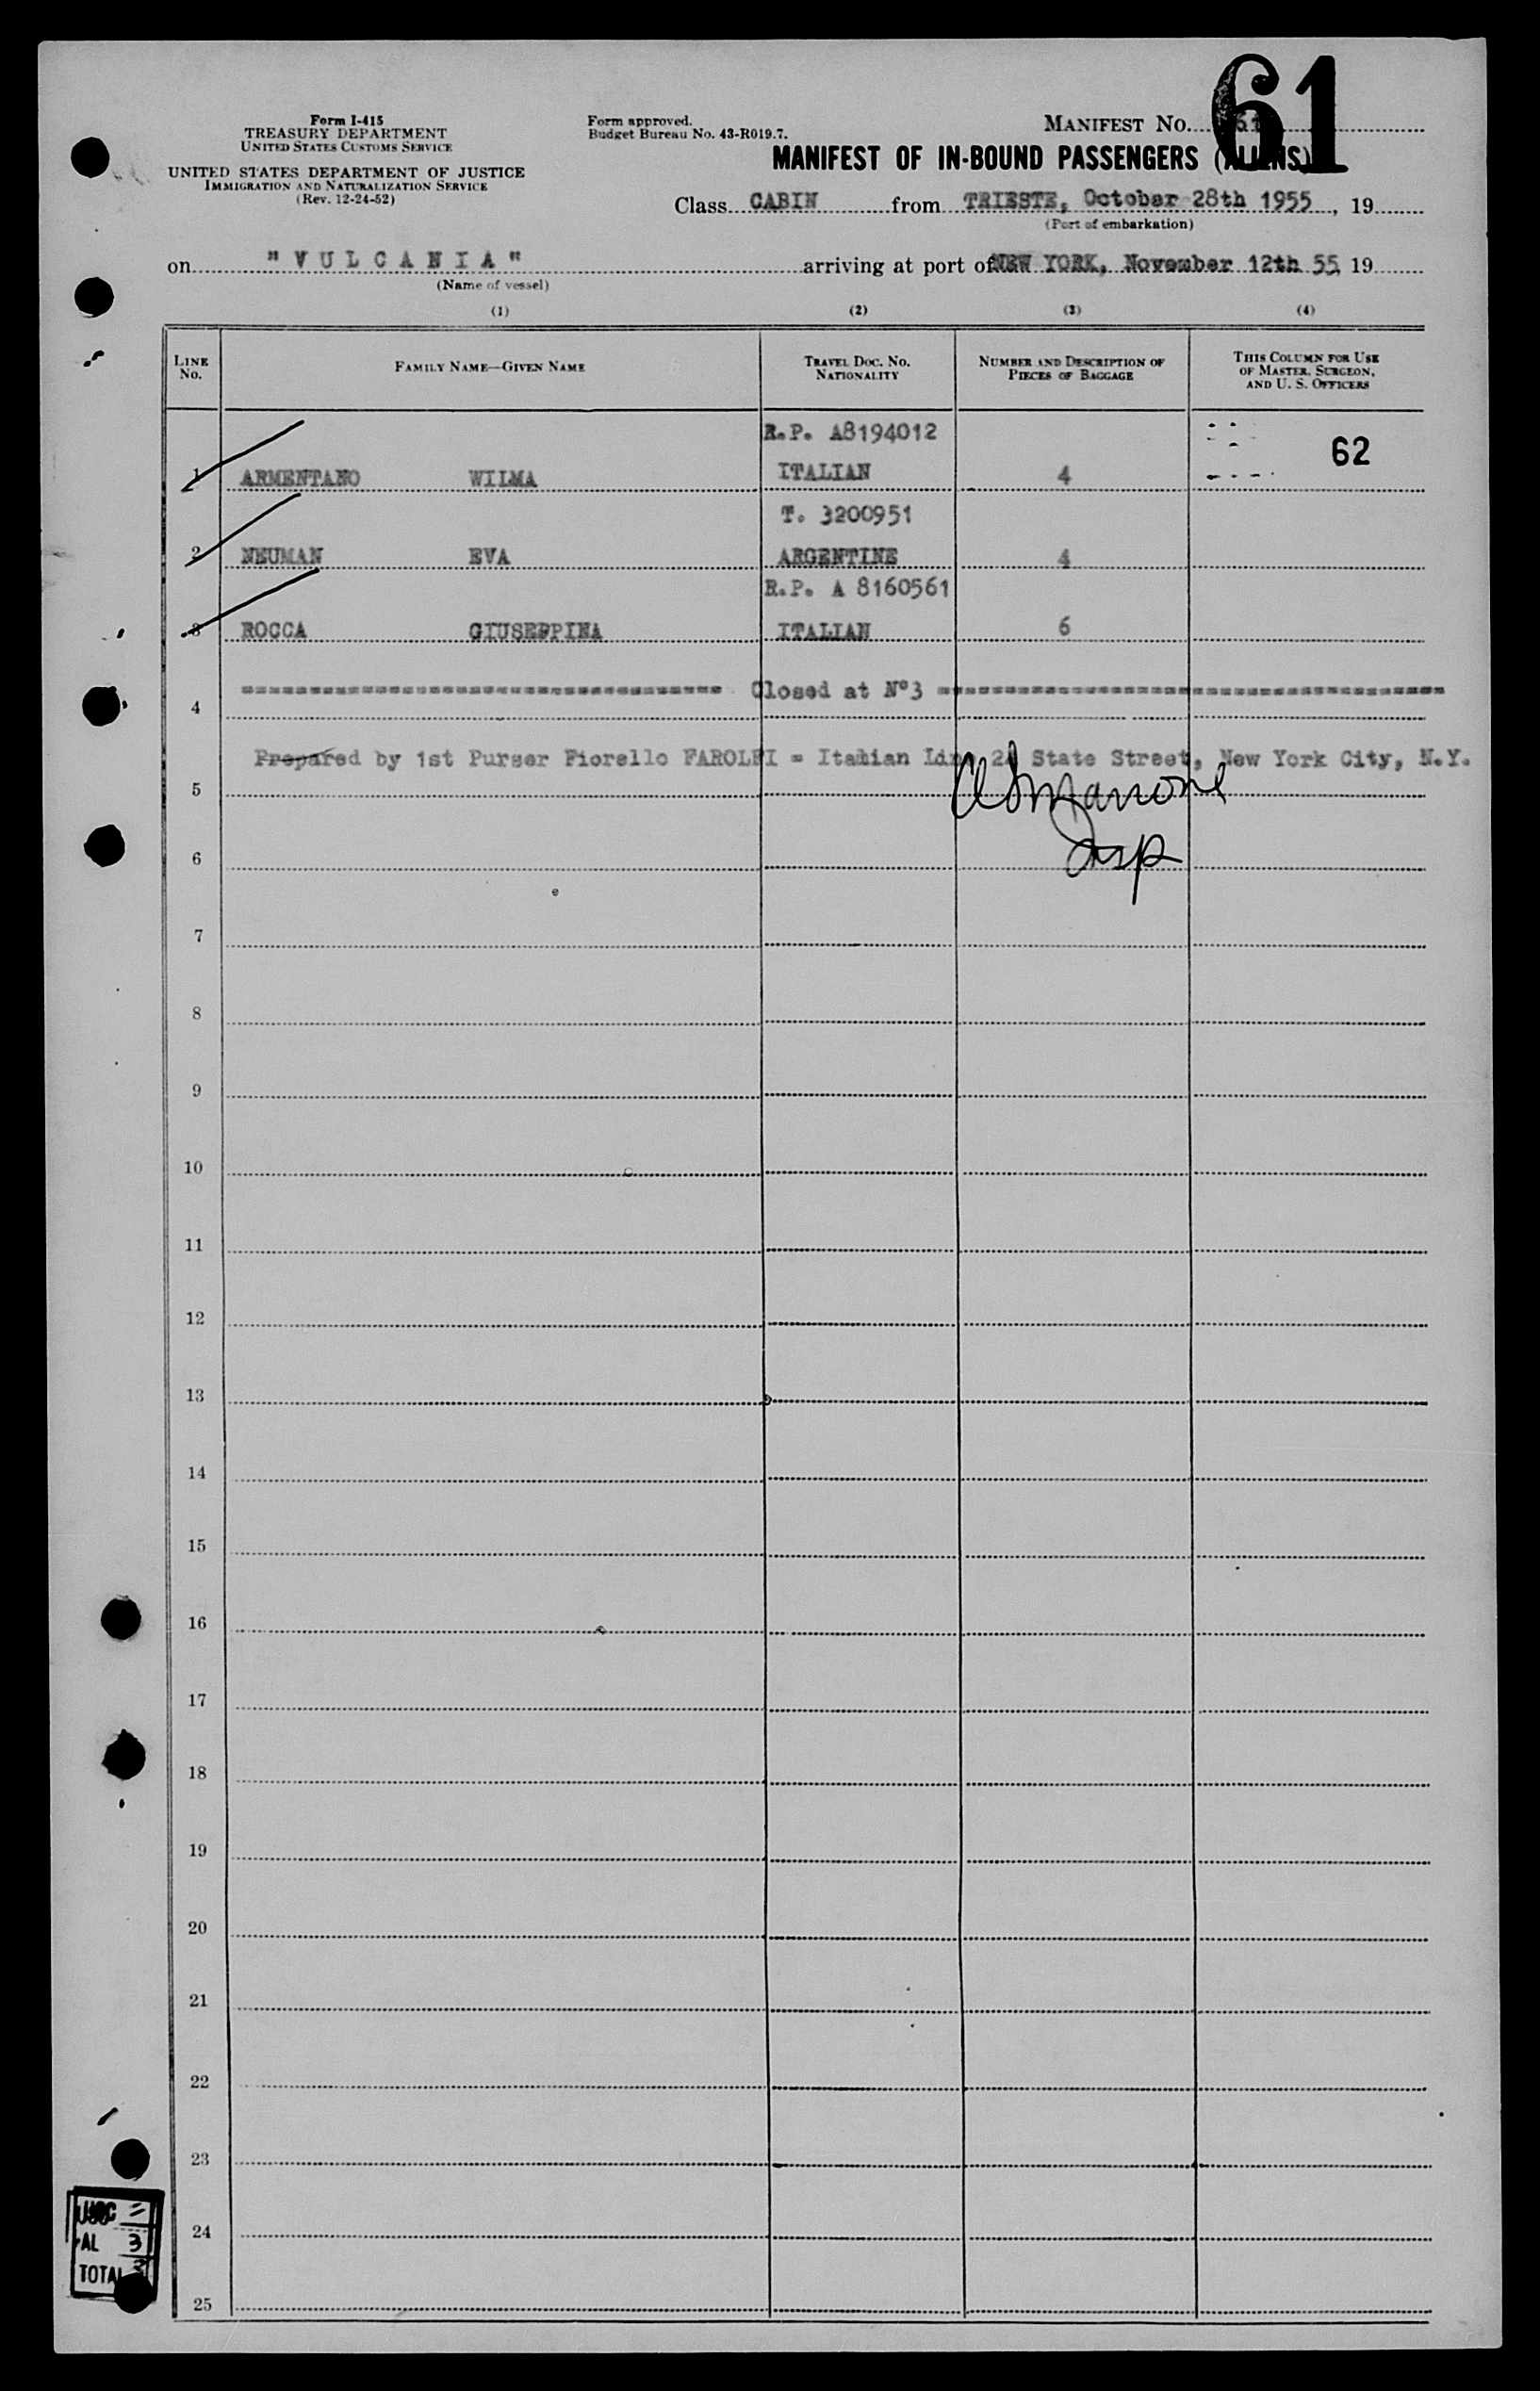 61
Form I-415
TREASURY DEPARTMENT
UNITED STATES CUSTOMS SERVICE
UNITED STATES DEPARTMENT OF JUSTICE
IMMIGRATION AND NATURALIZATION SERVICE
(Rev. 12-24-52)
Form approved.
Budget Bureau No. 43-R019.7.
MANIFEST NO.
MANIFEST OF IN-BOUND PASSENGERS (ALIENS)
Class CABIN from TRIESTE, October 28th 1955, 19
(Port of embarkation)
on "VULCANIA" arriving at port of NEW YORK, November 12th 55, 19
(Name of vessel)
(1) (2) (3) (4)
LINE No. FAMILY NAME—GIVEN NAME TRAVEL DOC. NO. NATIONALITY NUMBER AND DESCRIPTION OF PIECES OF BAGGAGE THIS COLUMN FOR USE OF MASTER, SURGEON, AND U. S. OFFICERS
R.P. A8194012 62
1 ARMENTANO WILMA ITALIAN 4
T. 3200951
2 NEUMAN EVA ARGENTINE 4
R.P. A 8160561
3 ROCCA GIUSEPPINA ITALIAN 6
Closed at N°3
4
Prepared by 1st Purser Fiorello FAROLFI = Italian Line 24 State Street, New York City, N.Y.
5
Insp
6
7
8
9
10
11
12
13
14
15
16
17
18
19
20
21
22
23
USC =
24
AL 3
TOTAL 3
25